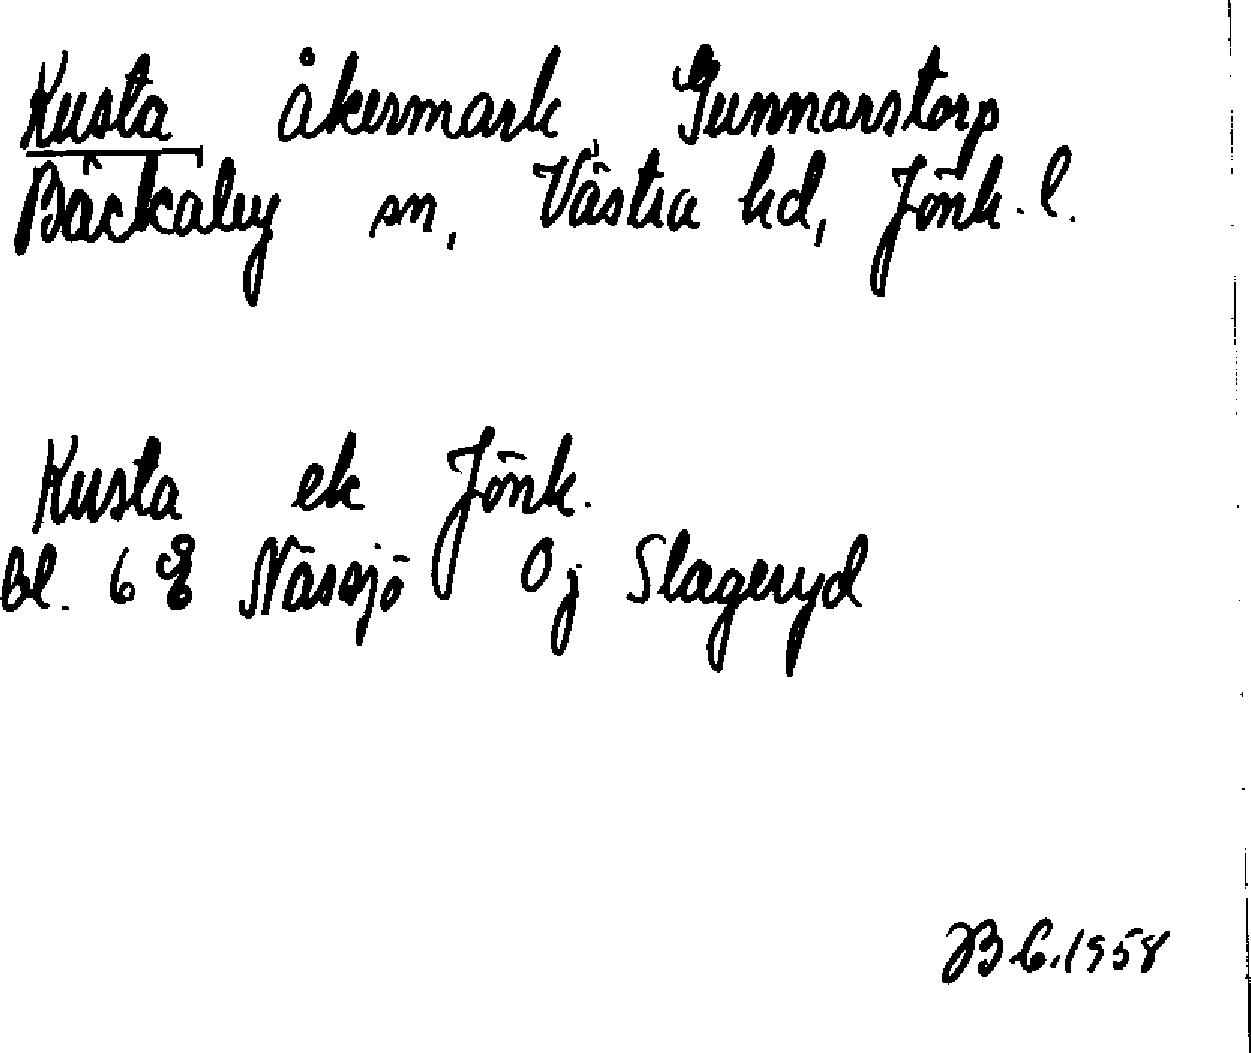 Kusta åkermark Gunnarstorp
Bäckaby sn, Västra hd, Jönk. l.
Kusta ek Jönk.
Bl. 6 E Nässjö 0 j Slageryd
B C. 1958